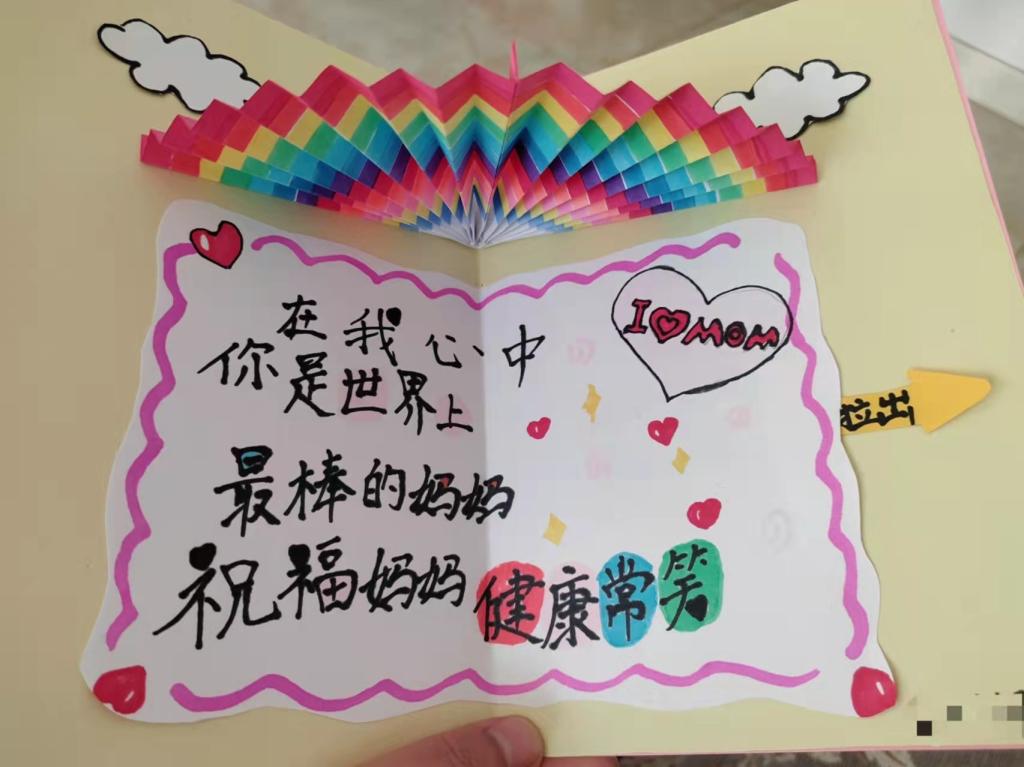 在我心中
你是世界上
最棒的妈妈
祝福妈妈健康常笑
I ♥ MOM
打开